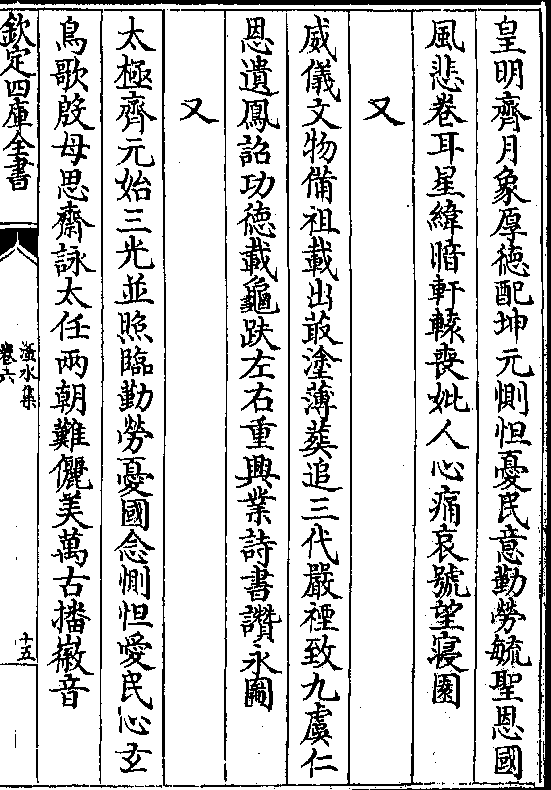 皇明齊月象厚德配坤元惻怛憂民意勤勞毓聖恩國
風悲卷耳星緯暗軒轅喪妣人心痛哀號望寢園
又
威儀文物備祖載出菆塗薄葬追三代嚴禋致九虞仁
恩遺鳳詔功德載龜趺左右重興業詩書讚永圖
又
太極齊元始三光並照臨勤勞憂國念惻怛愛民心玄
鳥歌殷母思齋詠太任兩朝難儷美萬古播徽音
欽定四庫全書
滏水集
卷六
十五